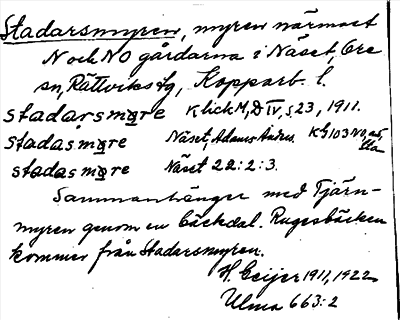 Stadarsmyren, myren närmast
N och NO gårdarna i Näset, Ore
sn, Rättviks tg, Kopparb. l.
stadarsmyre Klick M, D IV, s 23, 1911.
stadasmyre Näset, Adams Anders KG 103 NO, ad,
stadasmyre Näset 22:2:3.
Sammanhänger med Tjärn-
myren genom en bäckdal. Rugesbäcken
kommer från Stadarsmyren.
H. Geijer 1911, 1922
Ulma 663:2